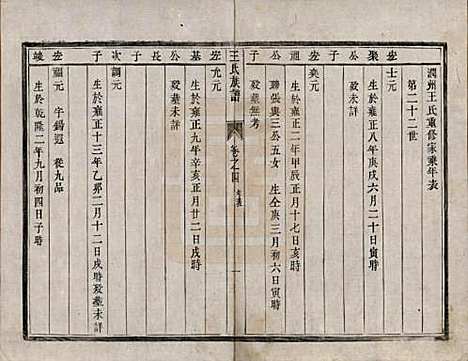 潤州王氏重修家乘年表
第二十二世
士元
生於雍正八年庚戌六月二十日寅時
歿葬未詳
聚公長子
奕元
生於雍正二年甲辰正月十七日亥時
聯張與三公五女 生仝庚三月初六日寅時
歿葬無考
公子
王氏族譜
卷之四
年表
一
九元
生於雍正九年辛亥正月廿二日戌時
歿葬未詳
基公長子
調元
生於雍正十三年乙卯二月十二日戌時歿葬未詳
次子
福元 字錫遐 從九品
生於乾隆二年九月初四日子時